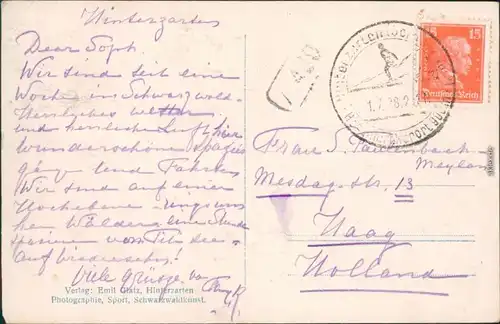 Hinterzarten
Dear Soph.
Wir sind seit eine
Woche im Schwarzwald
Herrliches wetter
und herrliche Luft, hier
wunderschöne Spazier
gänge und Fahrten
Wir sind auf einer
Hochebene - rings um
her Wälder, eine Stunde
von Titisee -
Auf Wiedersehn!
Viele Grüsse, von
Verlag: Emil Glatz, Hinterzarten
Photographie, Sport, Schwarzwaldkunst.
15
Deutsches Reich
Frau S.
Mesdag-str. 13
Haag
Holland